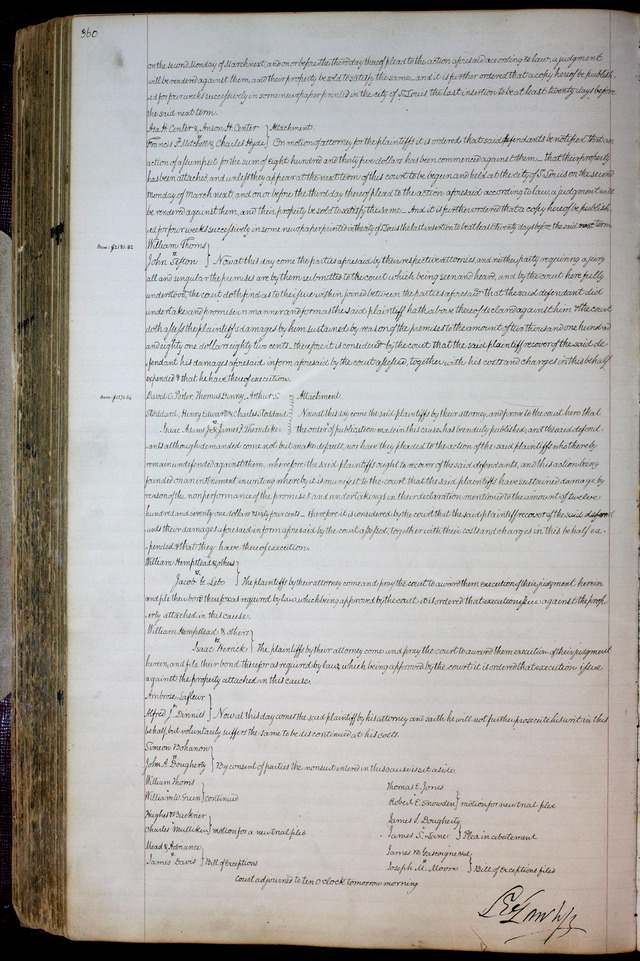 360
on the second Monday of March next, and on or before the third day thereof plead to the action aforesaid according to law, a judgment
will be rendered against them, and their property be sold to satisfy the same. and it is further ordered that a copy hereof be publish-
ed for four weeks successively in some newspaper printed in the city of St Louis the last insertion to be at least twenty days before
the said next term.
Asa H. Center & Anson H. Center } Attachment.
Francis P. Mitchell & Charles Hyde } On motion of attorney for the plaintiffs it is ordered that said defendants be notified that an
action of assumpsit for the sum of eight hundred and thirty five dollars has been commenced against them – that their property
has been attached, and unless they appear at the next term of this court to be begun and held at the city of St Louis on the second
Monday of March next, and on or before the third day thereof plead to the action aforesaid, according to law, a judgment will
be rendered against them, and their property be sold to satisfy the same. And it is further ordered that a copy hereof be publish-
ed for four weeks successively in some newspaper printed in the city of St Louis the last insertion to be at least twenty days before the said next term
William Thoms
John Sefton } Now at this day come the parties aforesaid by their respective attornies, and neither party requiring a jury
all and singular the premises are by them submitted to the court which being seen and heard, and by the court here fully
understood, the court doth find as to the issue within joined between the parties aforesaid that the said defendant did
undertake and promise in manner and form as the said plaintiff hath above thereof declared against him & the court
doth assess the plaintiffs damages by him sustained by reason of the premises to the amount of two thousand one hundred
and eighty one dollars eighty two cents – therefore it is considered by the court that the said plaintiff recover of the said de-
fendant his damages aforesaid in form aforesaid by the court assessed, together with his costs and charges in this behalf
expended & that he have thereof execution.
David C. Porter, Thomas Harvey, Arthur S. } Attachment
Stoddard, Henry Edwards & Charles Stoddard } Now at this day come the said plaintiffs by their attorney, and prove to the court here that
Isaac Adams Jr & James F Thorndike } the order of publication made in this cause has been duly published, and the said defend-
ants although demanded come not but make default, nor have they pleaded to the action of the said plaintiffs who thereby
remain undefended against them, wherefore the said plaintiffs ought to recover of the said defendants, and this action being
founded on an instrument in writing whereby it is manifest to the court that the said plaintiffs have sustained damage by
reason of the nonperformance of the promises and undertakings in their declaration mentioned to the amount of twelve
hundred and seventy one dollars sixty four cents – therefore it is considered by the court that the said plaintiffs recover of the said defend-
ants their damages aforesaid in form aforesaid by the court assessed, together with their costs and charges in this behalf ex-
pended & that they have thereof execution.
William Hempstead & others
Jacob G Lebo } The plaintiffs by their attorney come and pray the court to award them execution of their judgment herein
and file their bond therefor as required by law, which being approved by the court it is ordered that execution issue against the prop-
erty attached in this cause.
William Hempstead & others
Isaac Herrick } The plaintiffs by their attorney come and pray the court to award them execution of their judgment
herein, and file their bond therefor as required by law, which being approved by the court it is ordered that execution issue
against the property attached in this cause.
Ambrose Lafleur
Alfred J Dennis } Now at this day comes the said plaintiff by his attorney and saith he will not further prosecute his writ in this
behalf, but voluntarily suffers the same to be discontinued at his costs.
Simeon Bohanon
John A Dougherty } By consent of parties the nonsuit entered in this cause is set aside.
William Thoms
William W. Green } continued
Hughes & Buckner
Charles Mullikin } motion for a new trial filed
Mead & Adriance
James Davis } Bill of Exceptions
Thomas E. Jones
Robert E. Snowden } motion for new trial filed
James S. Dougherty
James S. Lane } Plea in abatement
James vs Gascoigne
Joseph M. Moore } Bill of Exceptions filed
Court adjourned to ten O'clock tomorrow morning